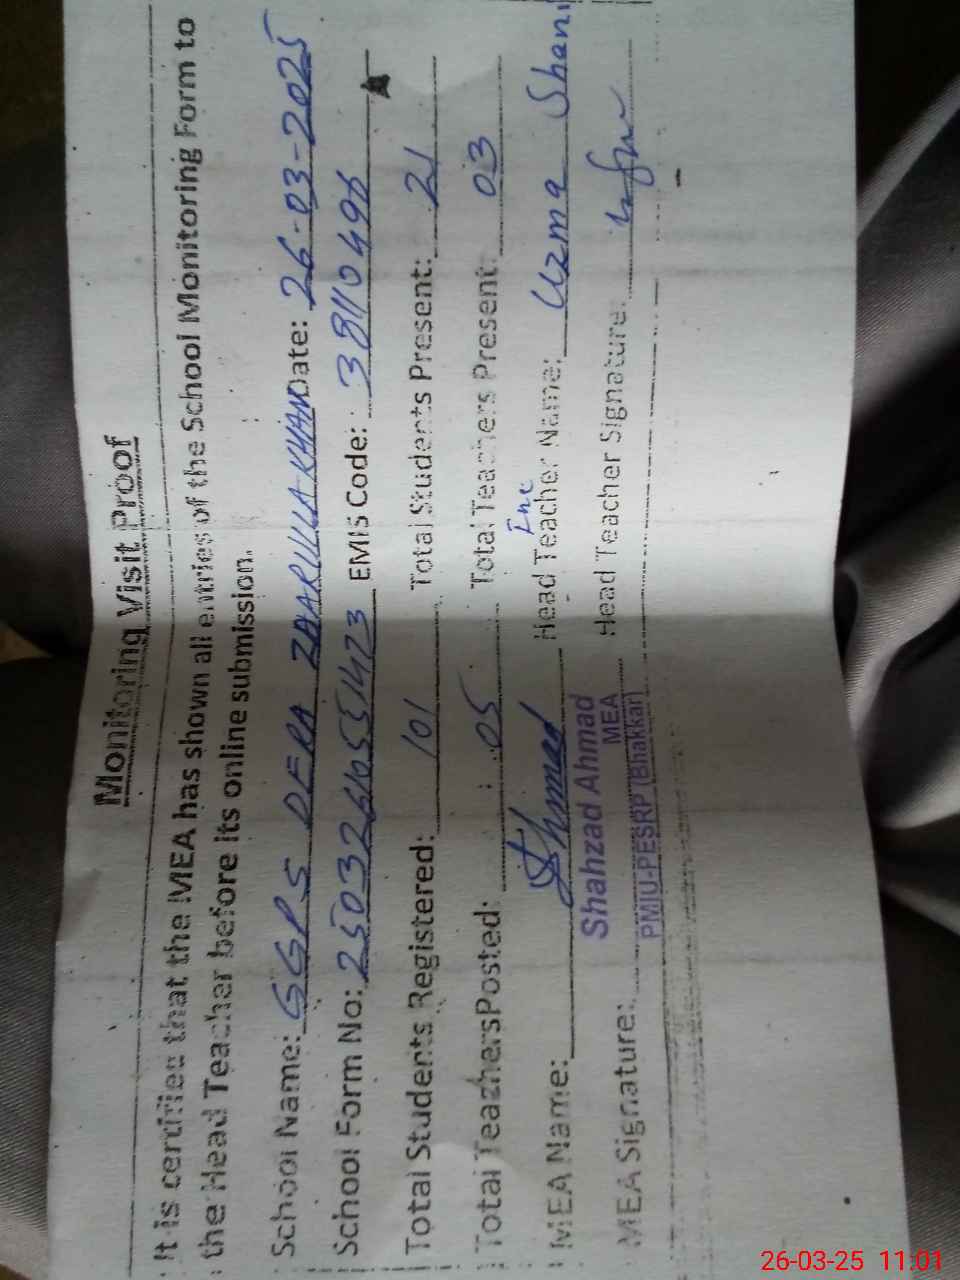 Monitoring Visit Proof
It is certified that the MEA has shown all entries of the School Monitoring Form to
the Head Teacher before its online submission.
School Name: GGPS DERA ZAARULLA KHAN Date: 26-03-2025
School Form No: 25032610551473 EMIS Code: 38110496
Total Students Registered: 101 Total Students Present: 21
Total Teachers Posted: 05 Total Teachers Present: 03
Inc
MEA Name: Ahmad Head Teacher Name: Uzma Shani
Shahzad Ahmad
MEA
MEA Signature: Head Teacher Signature:
PMIU-PESRP (Bhakkar)
26-03-25 11:01